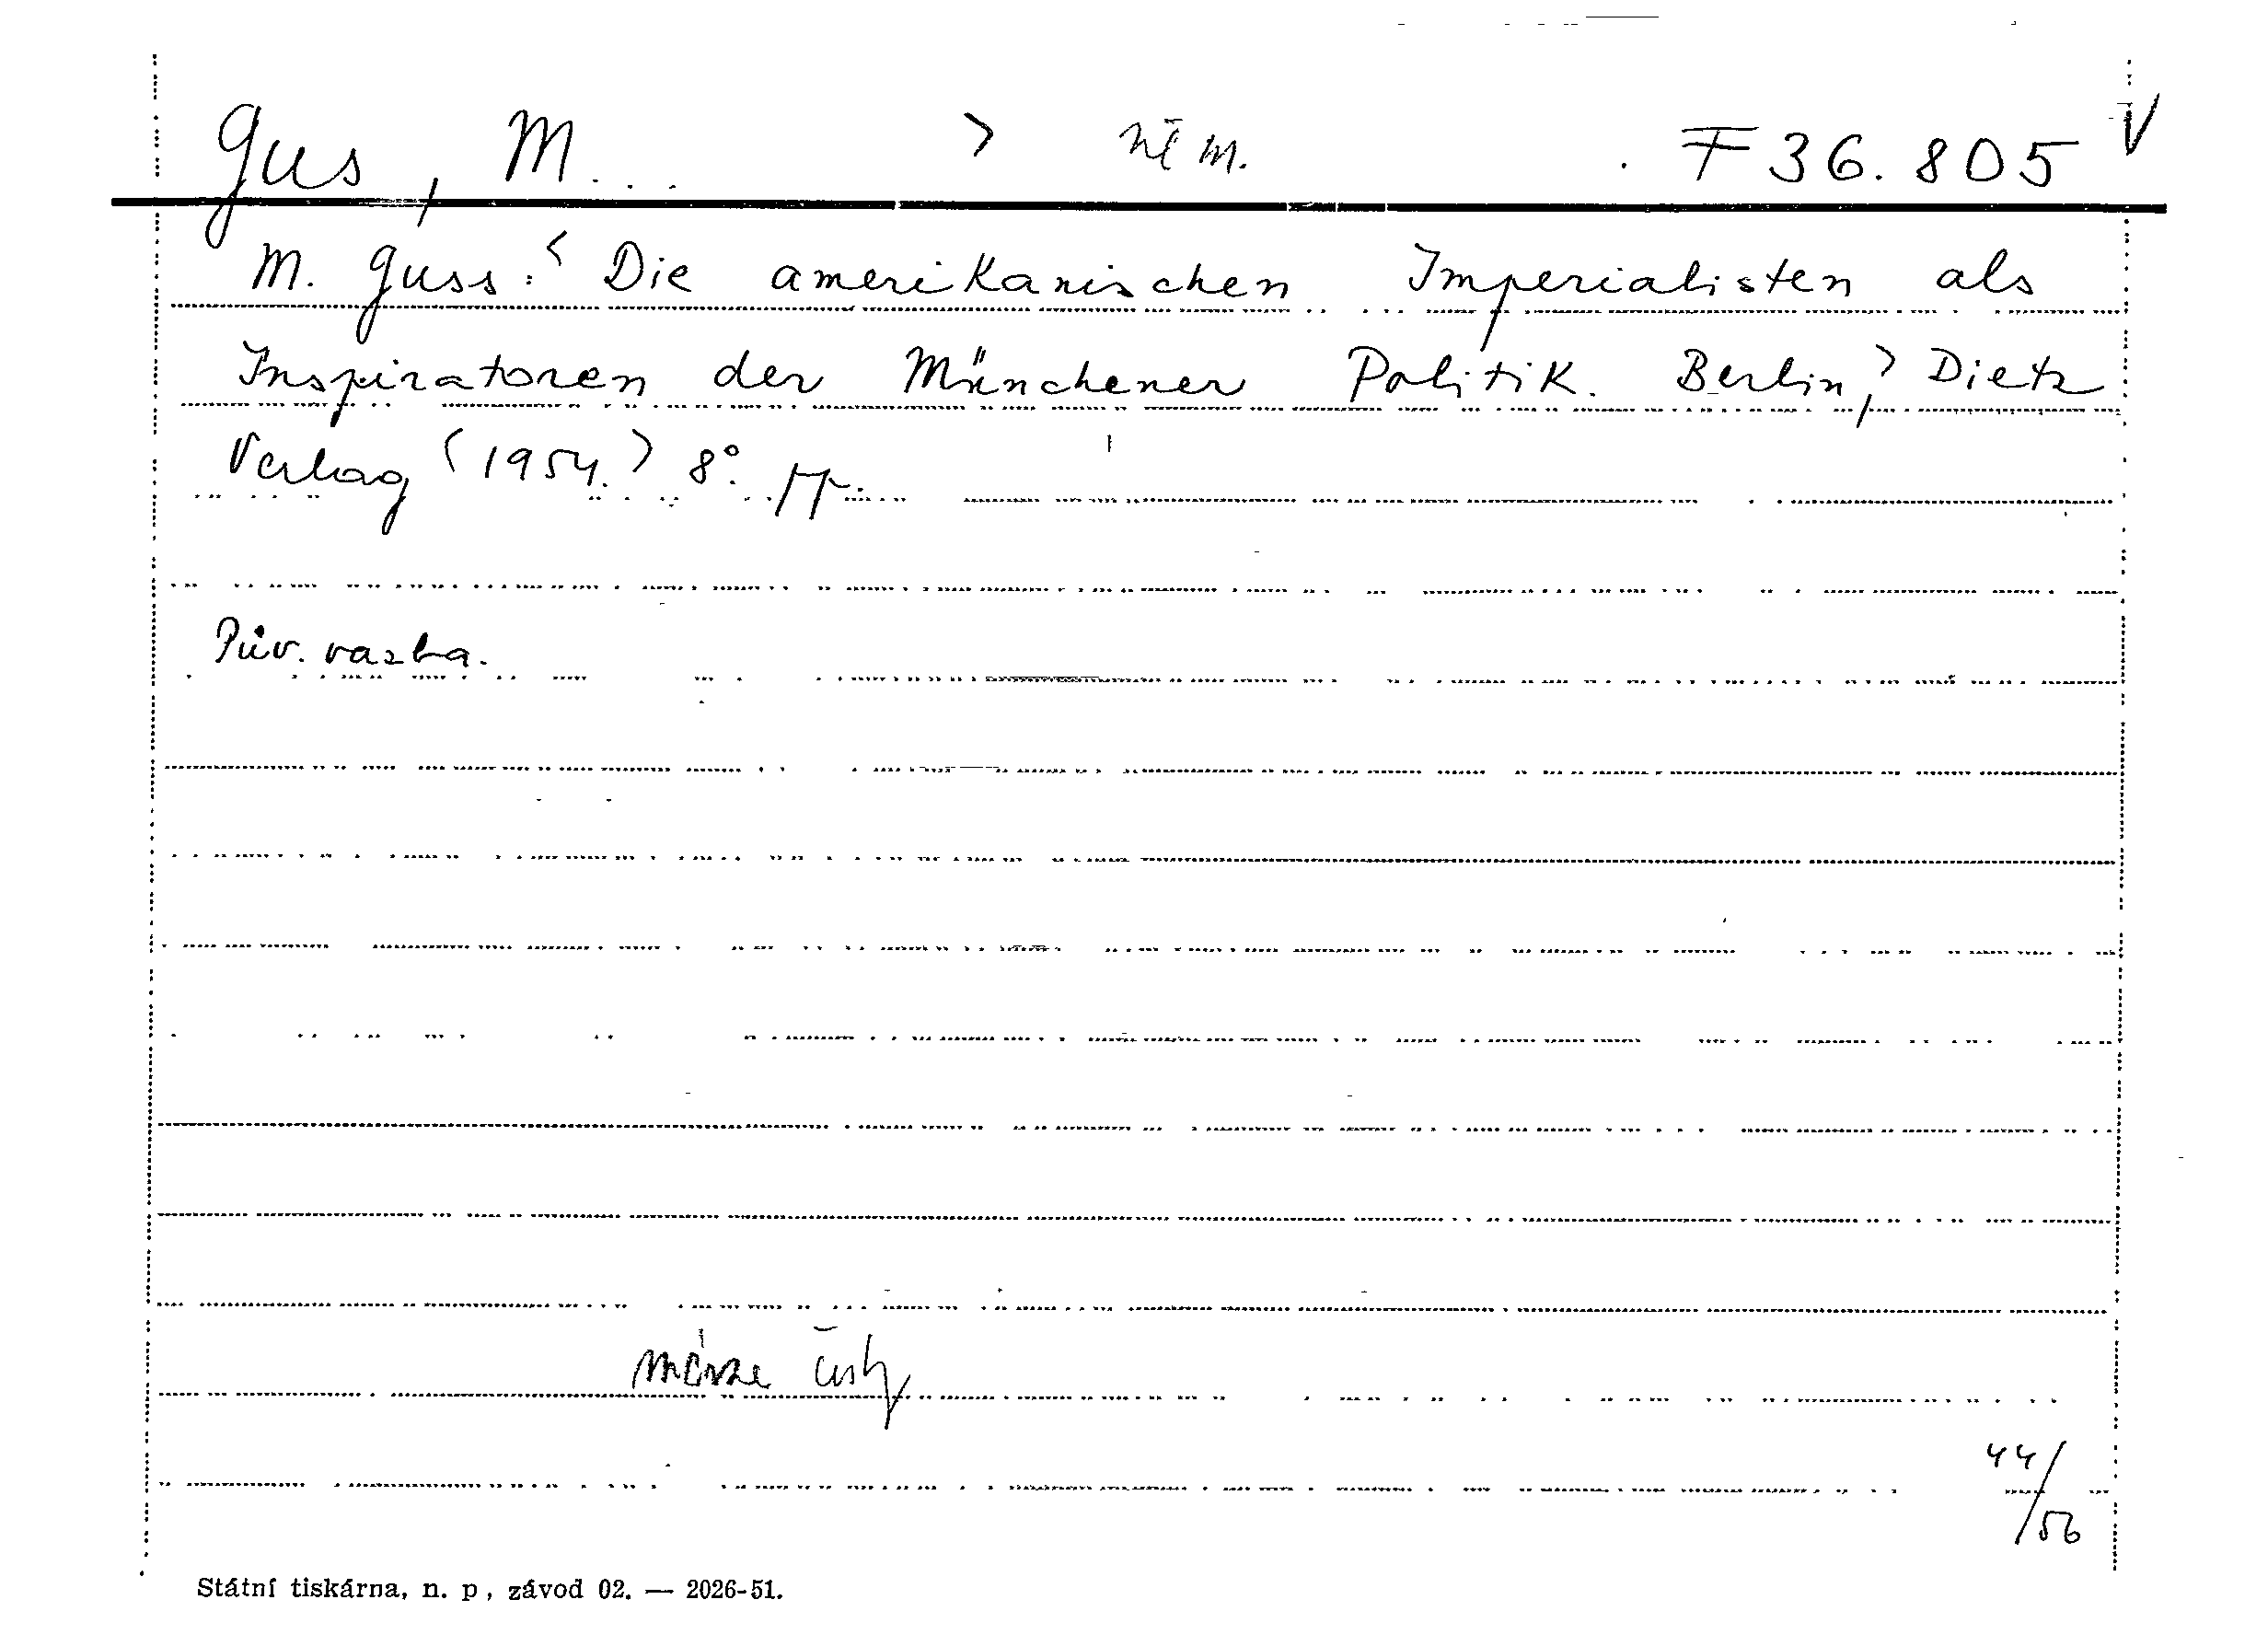 Gus, M... > něm. F 36.805 V
M. Guss: < Die amerikanischen Imperialisten als
Inspiratoren der Münchener Politik. Berlin, > Dietz
Verlag (1954.) 8°.
Pův. vazba.
44/56
Státní tiskárna, n. p, závod 02. — 2026-51.